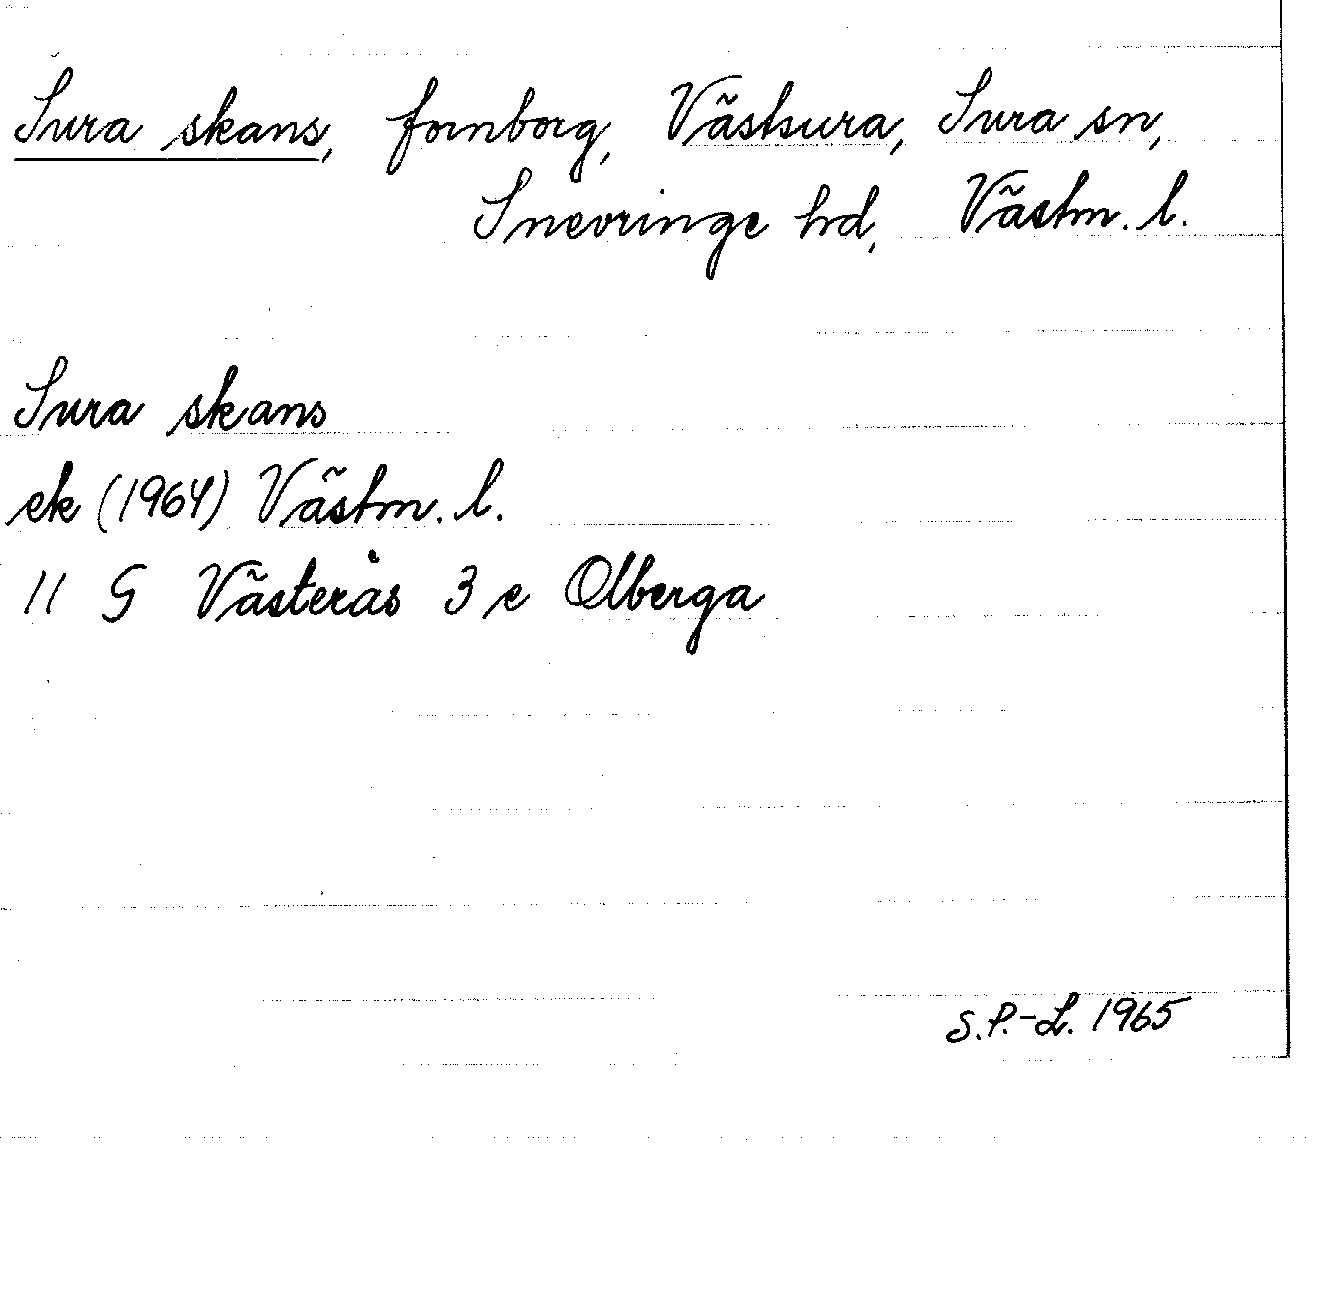 Sura skans, fornborg, Västsura, Sura sn,
Snevringe hd, Västm. l.
Sura skans
ek (1964) Västm. l.
11 G Västerås 3 e Olberga
S.P.-L. 1965